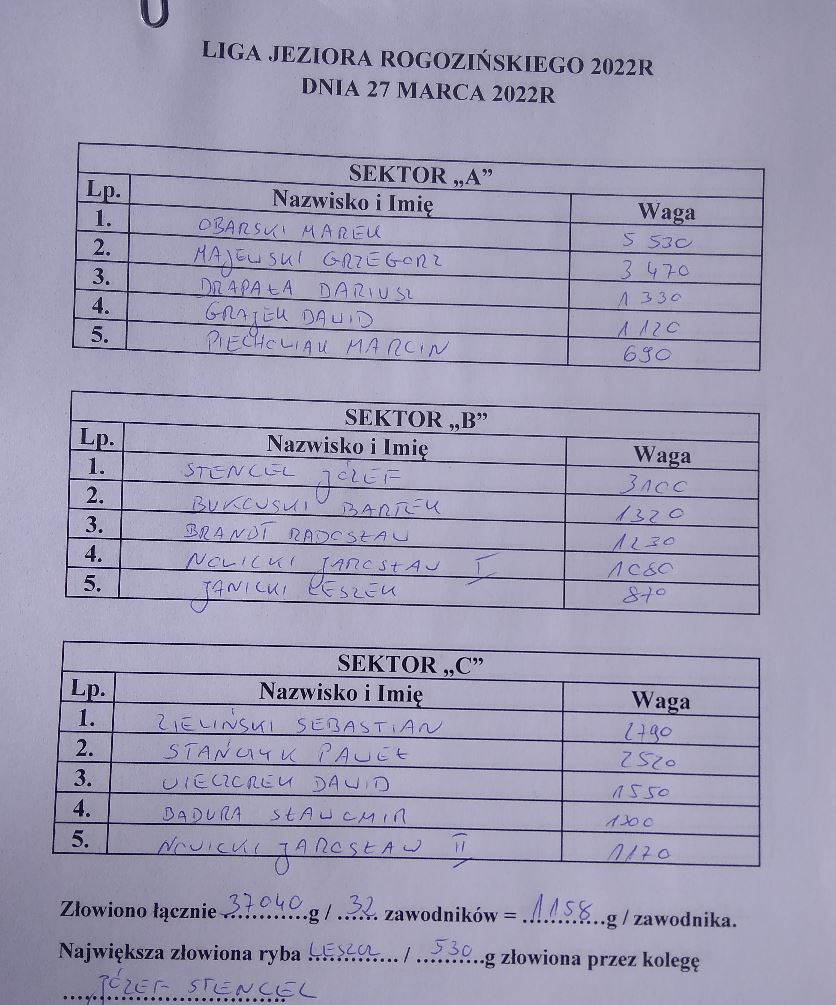 LIGA JEZIORA ROGOZIŃSKIEGO 2022R
DNIA 27 MARCA 2022R
SEKTOR „A”
Lp. Nazwisko i Imię Waga
1. OBARSKI MAREK 5 530
2. MAJEWSKI GRZEGORZ 3 470
3. DRAPAŁA DARIUSZ 1 330
4. GRAJEK DAWID 1 120
5. PIECHOWIAK MARCIN 690
SEKTOR „B”
Lp. Nazwisko i Imię Waga
1. STENCEL JÓZEF 3100
2. BUKOWSKI BARTEK 1320
3. BRANDT RADOSŁAW 1230
4. NOWICKI JAROSŁAW I 1080
5. JANICKI LESZEK 870
SEKTOR „C”
Lp. Nazwisko i Imię Waga
1. ZIELIŃSKI SEBASTIAN 2790
2. STAŃCZYK PAWEŁ 2520
3. WIECZOREK DAWID 1550
4. BADURA SŁAWOMIR 1300
5. NOWICKI JAROSŁAW II 1170
Złowiono łącznie 37040 g / 32 zawodników = 1158 g / zawodnika.
Największa złowiona ryba LESZCZ / 530 g złowiona przez kolegę
JÓZEF STENCEL